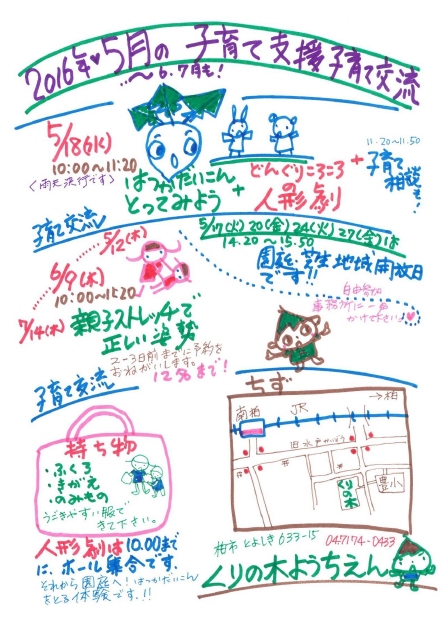 2016年♥5月の 子育て支援子育て交流
…〜6.7月も!
5/18(水)
10:00〜11:20
<雨天決行です>
はつかだいこん
とってみよう
+
どんぐりころころ
の
人形劇
+
11:20〜11:50
子育て
相談も!
子育て交流
5/17(火)20(金)24(火)27(金)は
14:20〜15:50
園庭、芝生地域開放日
です!!
自由参加
事務所に一声
かけて下さい。
5/12(木)
6/9(木)
10:00〜11:20
7/14(木)
親子ストレッチで
正しい姿勢
2〜3日前までに予約を
おねがいします。
12名まで!
子育て交流
持ち物
・ふくろ
・きがえ
・のみもの
うごきやすい服で
きて下さい。
人形劇は10:00まで
に、ホール集合です。
それから園庭へ!はつかだいこん
をとる体験です.!!
ちず
→柏
南柏
JR
旧水戸かいどう
くりの木
豊小
柏市とよしき633-15
04-7174-0433
くりの木ようちえん